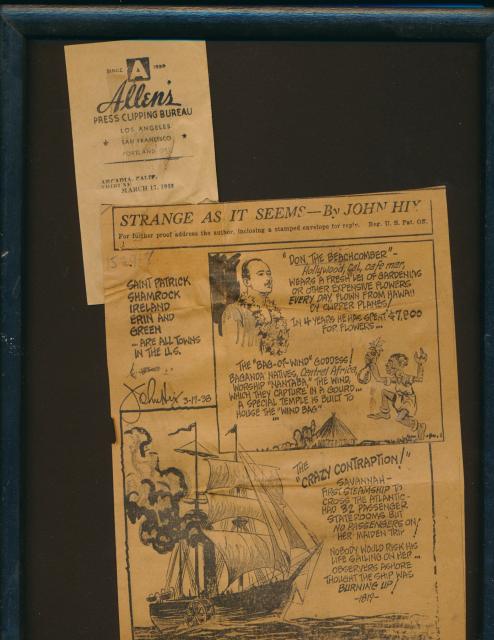 SINCE A 1888
Allen's
PRESS CLIPPING BUREAU
LOS ANGELES
SAN FRANCISCO
PORTLAND, ORE.
ARCADIA, CALIF.
TRIBUNE
MARCH 17, 1938
STRANGE AS IT SEEMS—By JOHN HIX
For further proof address the author, inclosing a stamped envelope for reply. Reg. U. S. Pat. Off.
SAINT PATRICK
SHAMROCK
IRELAND
ERIN AND
GREEN
... ARE ALL TOWNS
IN THE U.S.
John Hix 3-17-38
"DON, THE BEACHCOMBER"-
Hollywood, Cal., cafe man,
WEARS A FRESH LEI OF GARDENIAS
OR OTHER EXPENSIVE FLOWERS
EVERY DAY, FLOWN FROM HAWAII
BY CLIPPER PLANES!
IN 4 YEARS HE HAS SPENT $7,800
FOR FLOWERS...
THE "BAG-OF-WIND" GODDESS!
BAGANDA NATIVES, Central Africa,
WORSHIP "NANTABA," THE WIND,
WHICH THEY CAPTURE IN A GOURD...
A SPECIAL TEMPLE IS BUILT TO
HOUSE THE "WIND BAG"
...
THE
"CRAZY CONTRAPTION!"
SAVANNAH-
FIRST STEAMSHIP TO
CROSS THE ATLANTIC-
HAD 32 PASSENGER
STATEROOMS BUT
NO PASSENGERS ON
HER MAIDEN TRIP!
NOBODY WOULD RISK HIS
LIFE SAILING ON HER...
OBSERVERS ASHORE
THOUGHT THE SHIP WAS
BURNING UP!
-1819-